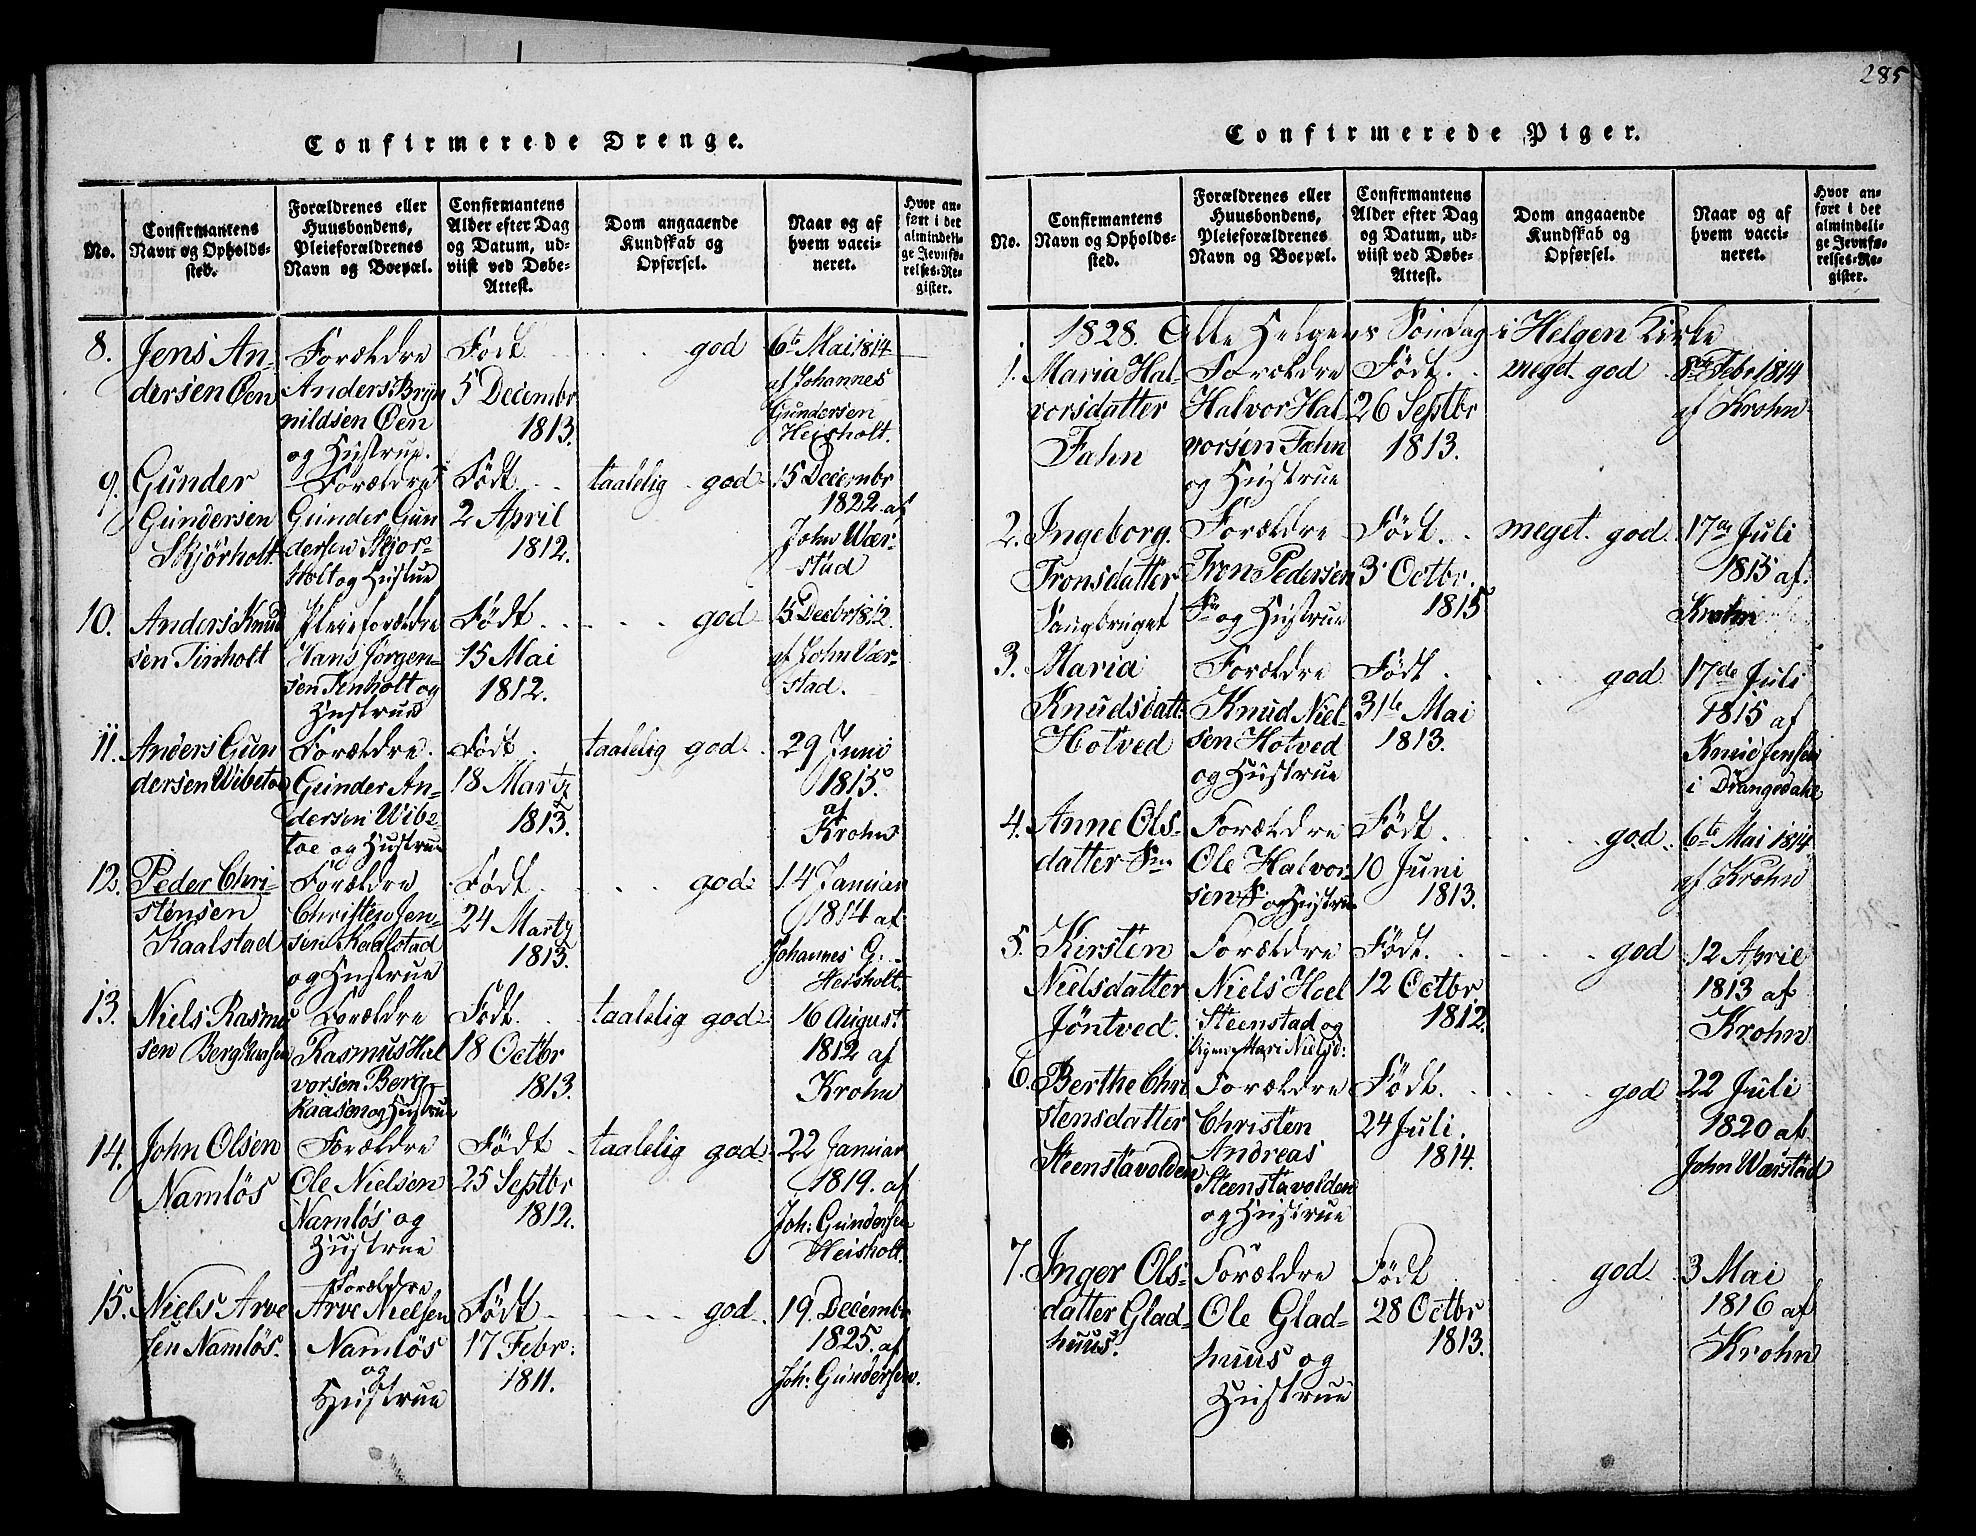 285
Confirmerede Drenge.
No.
Confirmantens
Navn og Opholds-
sted.
Forældrenes eller
Huusbondens,
Pleieforældrenes
Navn og Boepæl.
Confirmantens
Alder efter Dag
og Datum, ud-
viist ved Døbe-
Attest.
Dom angaaende
Kundskab og
Opførsel.
Naar og af
hvem vacci-
neret.
Hvor an-
ført i det
almindeli-
ge Jevnfø-
relses-Re-
gister.
8.
Jens An-
dersen Øen
Forældre
Anders Bryn
nildsen Øen
og Hustrue.
Født
5 Decembr
1813.
god
6te Mai 1814
af Johannes
Gundersen
Heisholt.
9.
Gunder
Gundersen
Skjørholt
Forældre
Gunder Gun
dersen Skjor-
holt og Hustrue
Født
2 April
1812.
taalelig god
15 Decembr
1822 af
John Wær-
stad
10.
Anders Knud
sen Tinholt
Pleieforældre
Hans Jørgen-
sen Tinholt og
Hustrue
Født
15 Mai
1812.
god
15 Decbr 1812.
af John Vær-
stad.
11.
Anders Gun
dersen Wibetoe
Forældre.
Gunder An-
dersen Wibe-
toe og Hustrue
Født
18 Martz
1813.
taalelig god
29 Juni
1815.
af
Krohn
12.
Peder Chri-
stensen
Kaalstad
Forældre
Christen Jen-
sen Kaalstad
og Hustrue
Født
24 Martz
1813.
god
14 Januar
1814 af
Johannes G.
Heisholt.
13.
Niels Rasmus
sen Berg
Forældre
Rasmus Hal
vorsen Berg-
kaasen og Hustrue
Født.
18 Octbr
1813.
taalelig god
16 August
1812 af
Krohn
14.
John Olsen
Namløs
Forældre
Ole Nielsen
Namløs og
Hustrue
Født
25 Septbr
1812.
taalelig god
22 Januar
1819. af
Joh: Gundersen
Heisholt.
15.
Niels Arve
sen Namløs.
Forældre
Arve Nielsen
Namløs
og
Hustrue
Født
17 Febr.
1811.
god
19. Decembr
1825. af
Joh: Gundersen.
Confirmerede Piger.
No.
Confirmantens
Navn og Opholds-
sted.
Forældrenes eller
Huusbondens,
Pleieforældrenes
Navn og Boepæl.
Confirmantens
Alder efter Dag
og Datum, ud-
viist ved Døbe-
Attest.
Dom angaaende
Kundskab og
Opførsel.
Naar og af
hvem vacci-
neret.
Hvor an-
ført i det
almindeli-
ge Jevnfø-
relses-Re-
gister.
1828. Alle Helgens Søndag i Helgen Kirke
1.
Maria Hal-
vorsdatter
Fæhn
Forældre
Halvor Hal
vorsen Fæhn
og Hustrue
Født.
26 Septbr
1813.
meget god
8de Febr 1814
af Krohn
2.
Ingeborg
Tronsdatter
Forældre
Tron Pedersen
og Hustrue
Født.
3 Octbr.
1815
meget god
17de Juli
1815 af
Krohn
3.
Maria
Knudsdatt.
Hotved
Forældre
Knud Niel-
sen Hotved
og Hustrue
Født
31te Mai
1813.
god
17de Juli
1815 af
Knud Jensen
i Drangedahl
4.
Anne Ols-
datter Sm
Forældre
Ole Halvor-
sen og Hustrue
Født.
10 Juni
1813.
god
6te Mai 1814
af Krohn
5.
Kirsten
Nielsdatter
Jøntved
Forældre
Niels Hoel
Steenstad og
Pigen Mari Nielsd:
Født.
12 Octbr
1812.
god
12 April
1813 af
Krohn
6.
Berthe Chri
stensdatter
Steenstavolden
Forældre
Christen
Andreas
Steenstavolden
og Hustrue
Født.
24 Juli.
1814.
god
22 Juli
1820 af
John Wærstad
7.
Inger Ols-
datter Glad-
huus.
Forældre
Ole Glad-
huus og
Hustrue
Født
28 Octbr
1813.
god
3 Mai
1816 af
Krohn